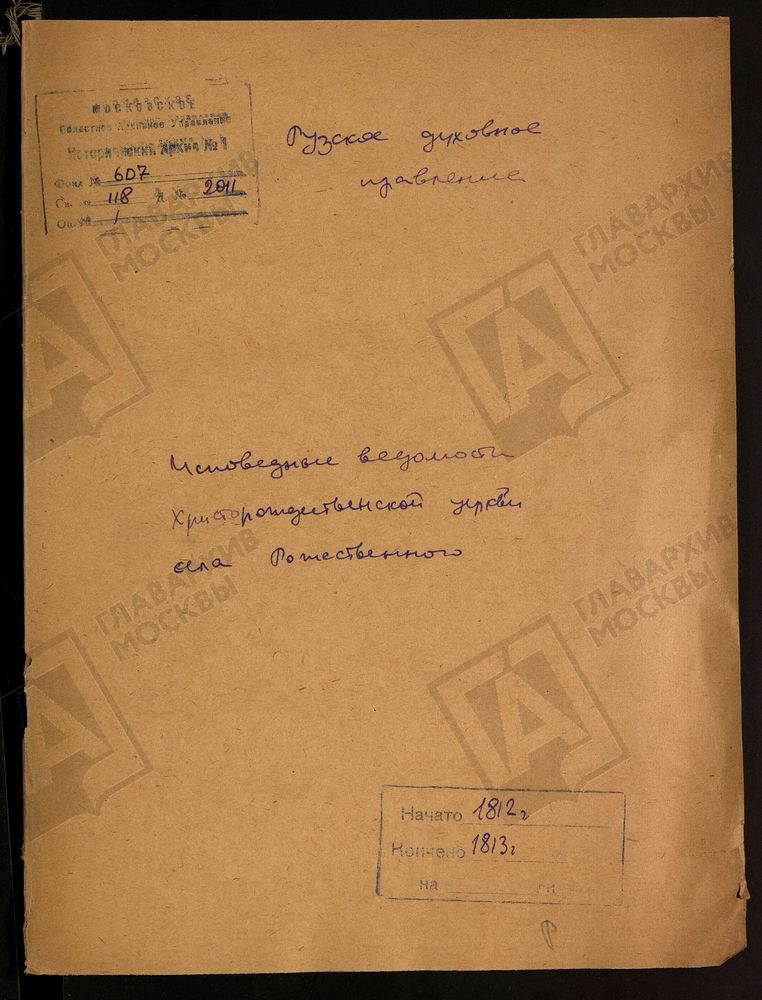 МОСКОВСКОЕ
Областное Архивное Управление
Исторический Архив № 1
Фонд № 607
Св. № 118 Д. № 2011
Оп. № 1
Рузское духовное
правление
ГЛАВАРХИВ
МОСКВЫ
ГЛАВАРХИВ
МОСКВЫ
Исповедные ведомости
Христорождественской церкви
села Рожественного
ГЛАВАРХИВ
МОСКВЫ
ГЛАВАРХИВ
МОСКВЫ
Начато 1812 г
Кончено 1813 г
на
Р